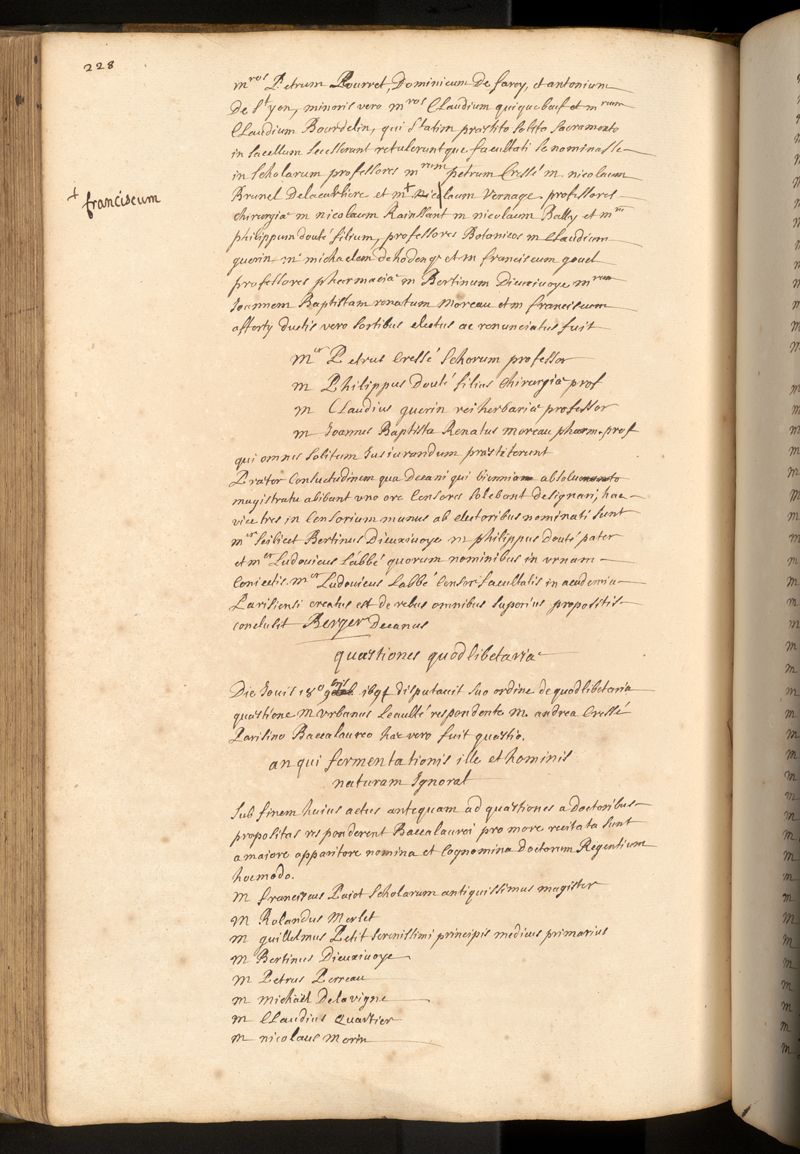 228
m^ros Petrum Pourret, Dominicum De farcy, et antonium
De S^t yon, minoris vero m^ros Claudium quiquebœuf et m^rum
Claudium Bourdelin, qui statim præstito solito sacramento
in sacellum secesserunt retuleruntque facultati se nominasse
in scholarum professores m^rum petrum Cressé m. nicolaum
Brunel et m^+ nicolaum Vernage. professores
+ franciscum
chirurgiæ m nicolaum Rainssant m nicolaum Bailly et m^m
philippum douté filium, professores Botanicos m Claudium
guerin m michaelem de hodencq et m franciscum gouel
professores pharmaciæ m Bertinum Dieuxivoye m^rum
Joannem Baptistam renatum Moreau et m franciscum
afforty ductis vero sortibus electus ac renunciatus fuit
m^er Petrus Cressé scholarum professor
m Philippus Douté filius Chirurgiæ prof
m Claudius guerin rei herbariæ professor
m Joannes Baptista Renatus moreau pharm. prof
qui omnes solitum Jusiurandum præstiterunt
Præter Consuetudinem qua Decani qui biennio absoluto
magistratu abibant uno ore Censores solebant designari, hac
vice tres in Censorium munus ab electoribus nominati sunt
m^er scilicet Bertinus Dieuxivoye m philippus douté pater
et m^er Ludovicus Labbé quorum nominibus in urnam
Coniectis m^er Ludovicus Labbé Censor facultatis in academia
Parisiensi creatus est de rebus omnibus superius propositis
conclusit Berger Decanus
quæstiones quodlibetariæ
Die Jovis 18º 9bris 1694 disputavit suo ordine de quodlibetaria
quæstione M Urbanus Leaulté respondente M. andrea Cressé
Parisino Baccalaureo hæc vero fuit quæstio.
an qui fermentationis ille et hominis
naturam Ignorat
Sub finem huius actus antequam ad quæstiones a Doctoribus
propositas responderent Baccalaurei pro more recitata sunt
a maiore apparitore nomina et Cognomina Doctorum Regentium
hocmodo.
M franciscus Paiot scholarum antiquissimus magister
M Rolandus Merlet
m guillelmus Petit serenissimi principis medicus primarius
m Bertinus Dieuxivoye
m Petrus Perreau
m michaël Delavigne
m Claudius Quartier
m nicolaus Morin